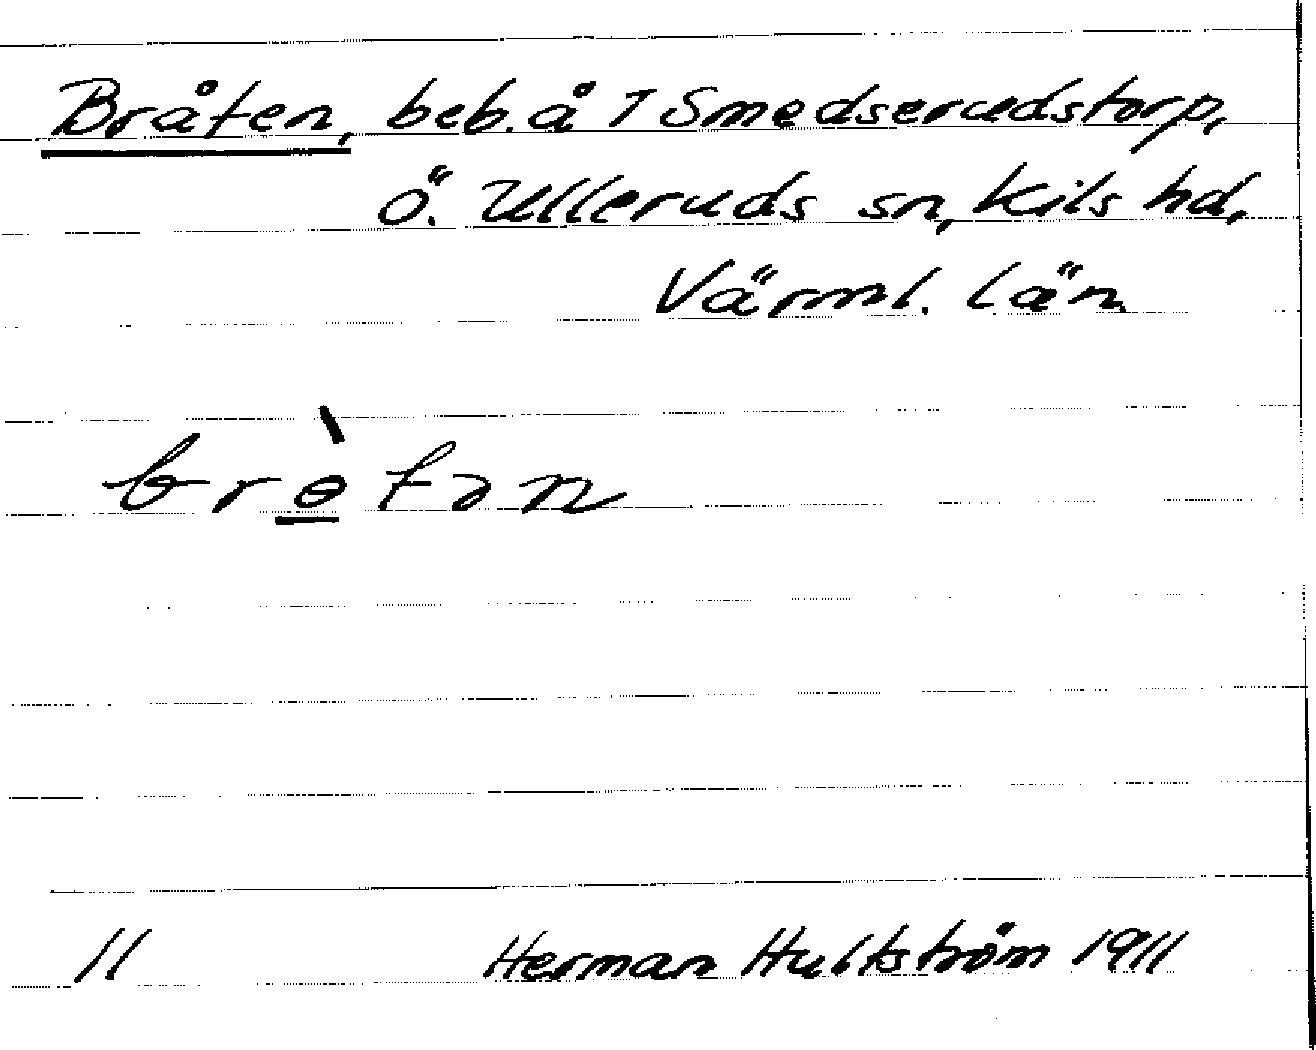 Bråten, beb. å 1 Smedserudstorp,
Ö. Ulleruds sn, Kils hd,
Värml. län.
brɵ̀tən
11 Herman Hultström 1911